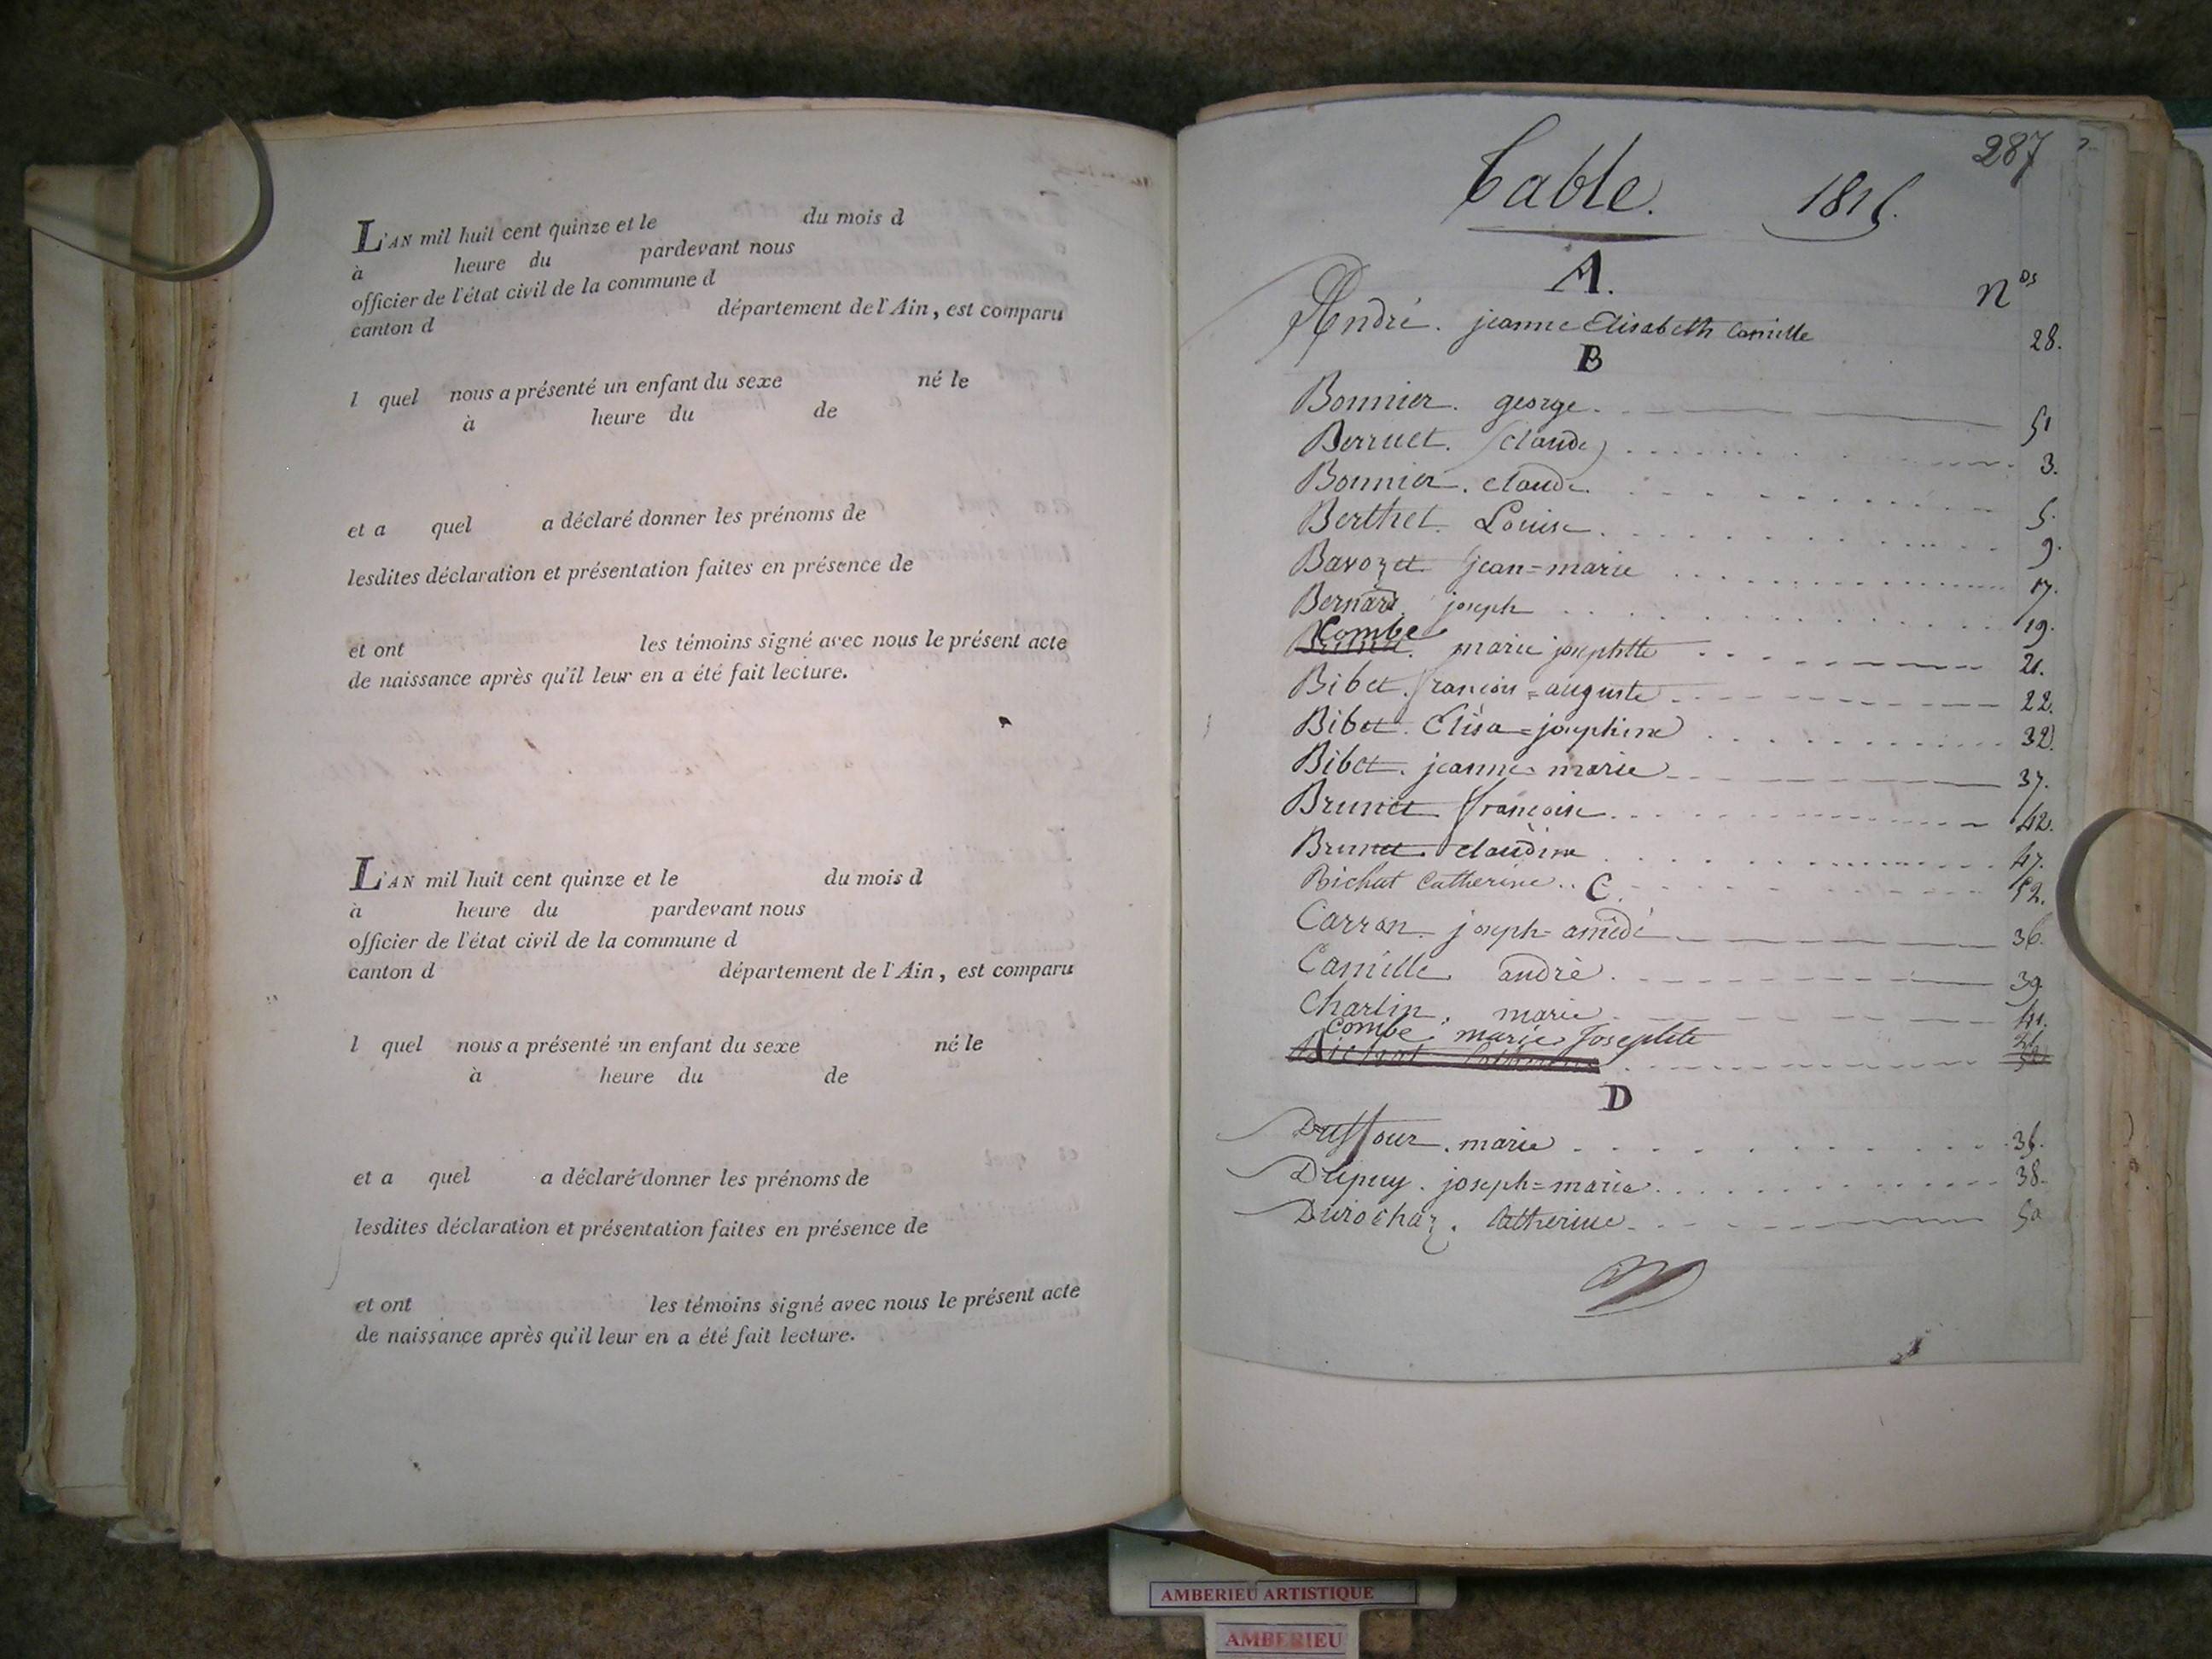 L'AN mil huit cent quinze et le du mois d
à heure du pardevant nous
officier de l'état civil de la commune d
canton d département de l'Ain, est comparu
l quel nous a présenté un enfant du sexe né le
à heure du de
et a quel a déclaré donner les prénoms de
lesdites déclaration et présentation faites en présence de
et ont les témoins signé avec nous le présent acte
de naissance après qu'il leur en a été fait lecture.
L'AN mil huit cent quinze et le du mois d
à heure du pardevant nous
officier de l'état civil de la commune d
canton d département de l'Ain, est comparu
l quel nous a présenté un enfant du sexe né le
à heure du de
et a quel a déclaré donner les prénoms de
lesdites déclaration et présentation faites en présence de
et ont les témoins signé avec nous le présent acte
de naissance après qu'il leur en a été fait lecture.
287
Table. 1815.
A. nos
André. jeanne Elisabeth Camille 28.
B
Bonnier. george. 51
Berruet. (claude) 3.
Bonnier. claude. 5.
Berthet. Louise. 9.
Bavozet. jean=marie 17.
Bernard. joseph 19.
Combe
marie josephtte 21.
Bibet. françois=auguste 22.
Bibet. Elisa=josephine 32.
Bibet. jeanne=marie 37.
Brunet françoise. 42.
Brunet. claudine 47.
Bichat Catherine.. 52.
C.
Carron. joseph=amédé 36.
Camille andré. 39.
Charlin. marie. 41.
Combe marie Josephte 21
Bichat Catherine 52
D
Duffour. marie 36.
Dupuy. joseph=marie. 38.
Durochaz. Catherine. 50
AMBERIEU ARTISTIQUE
AMBERIEU